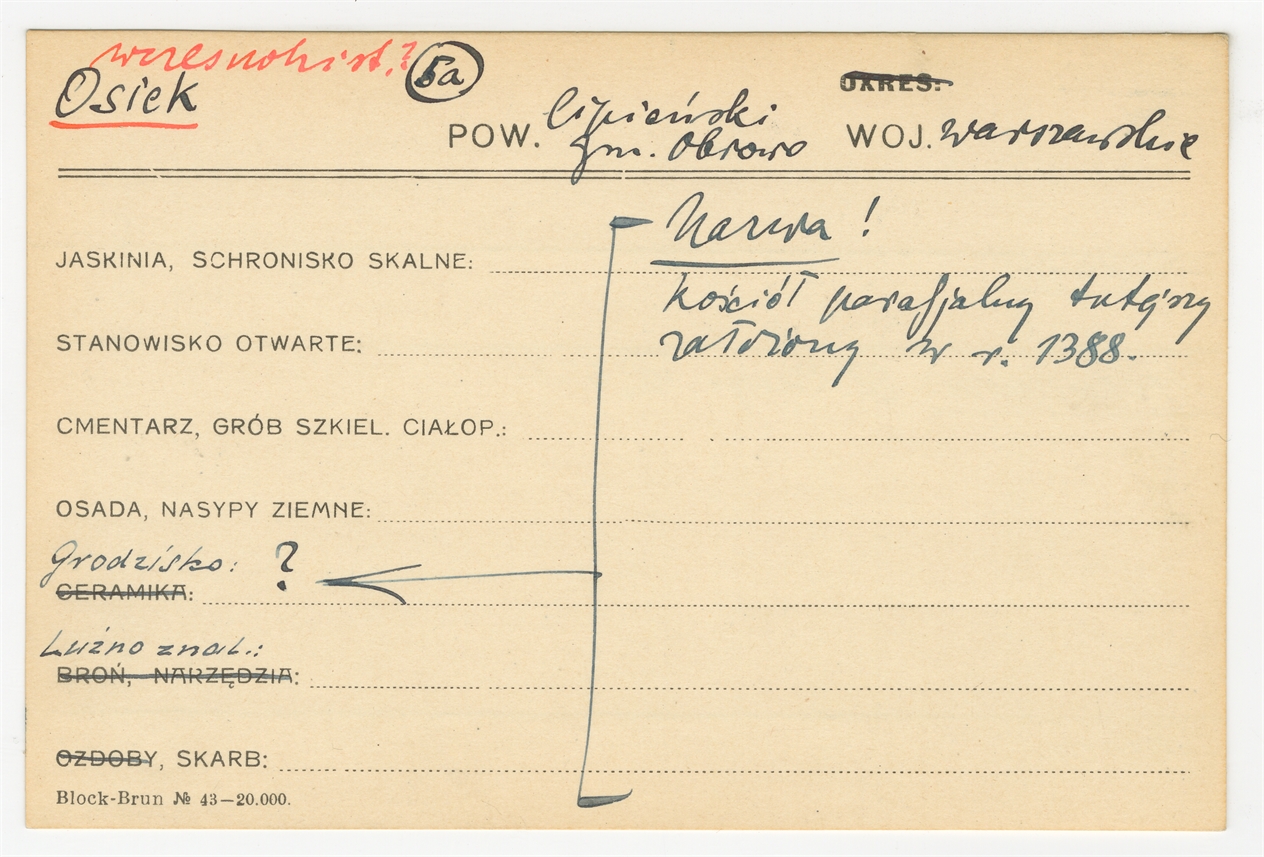 wczesnohist.?
Osiek
5a
OKRES:
POW. lipieński WOJ. warszawskie
gm. Obrowo
Nazwa !
JASKINIA, SCHRONISKO SKALNE:
kościół parafjalny tutejszy
STANOWISKO OTWARTE: założony w r. 1388.
CMENTARZ, GRÓB SZKIEL. CIAŁOP.:
OSADA, NASYPY ZIEMNE:
Grodzisko: ?
CERAMIKA:
Luźno znal.:
BROŃ, NARZĘDZIA:
OZDOBY, SKARB:
Block-Brun № 43—20.000.